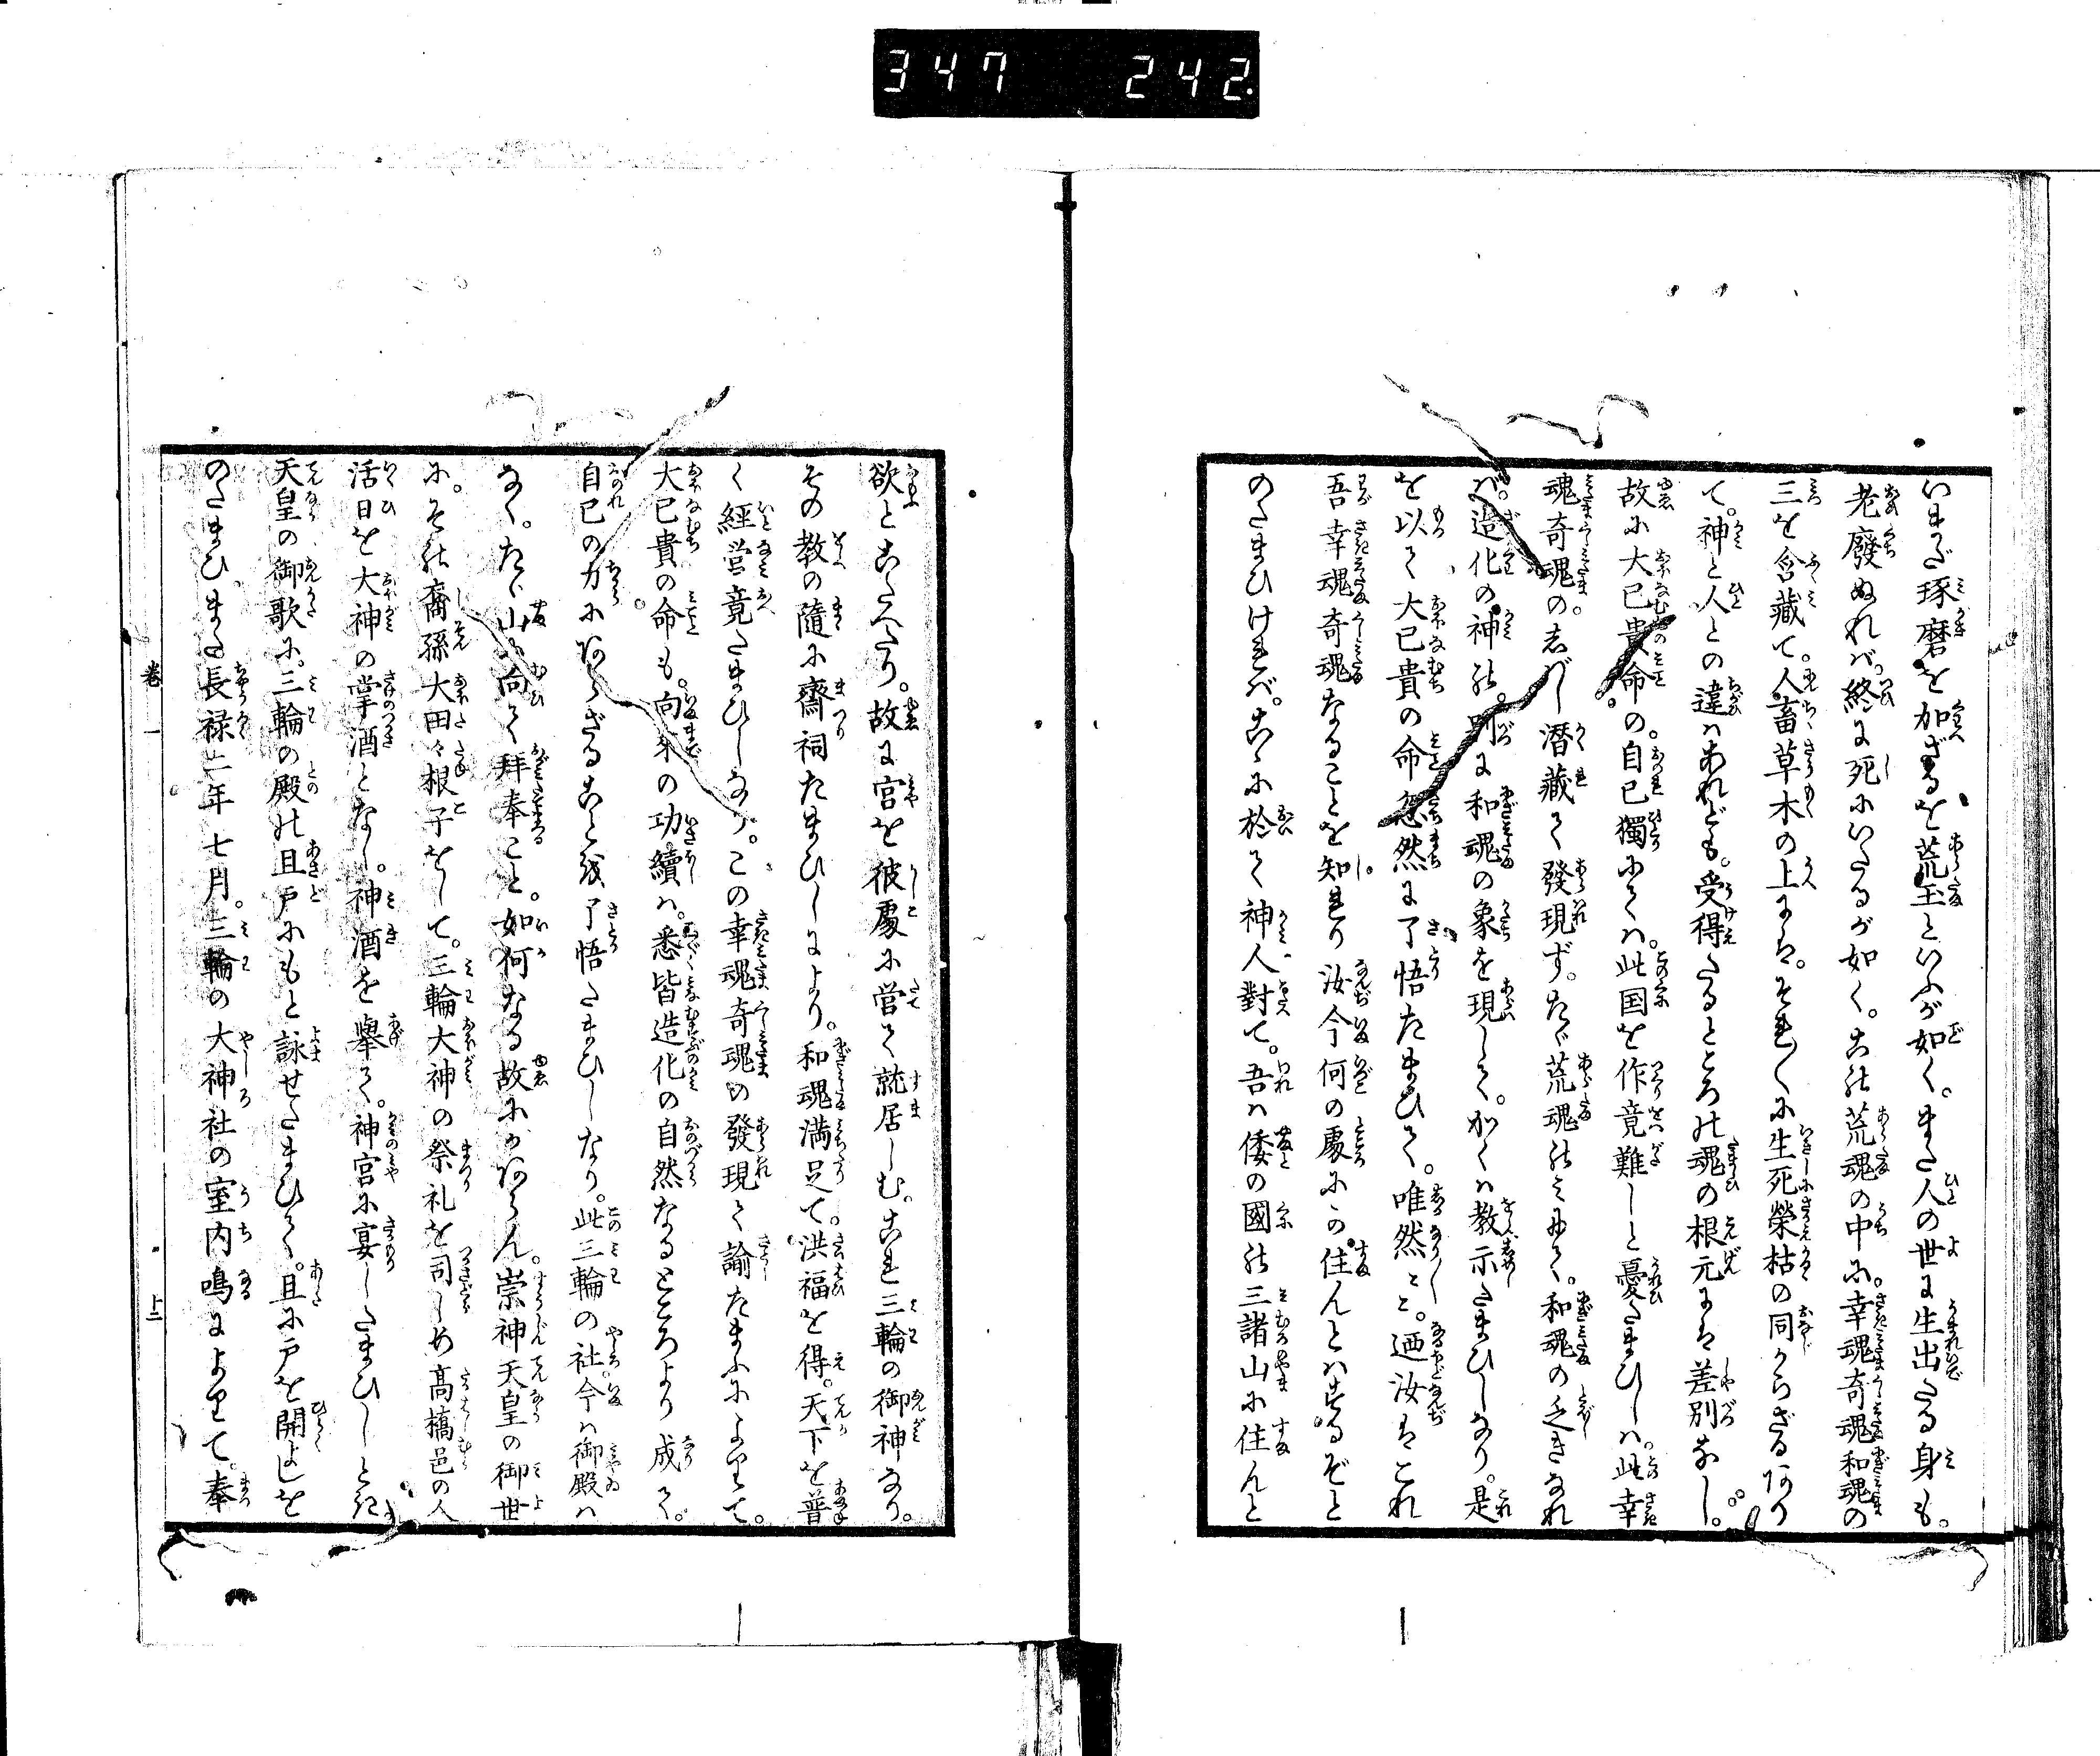 347 242.
いまだ琢磨を加ざるを荒玉といふが如く。また人の世に生出たる身も。
老廢ぬれバ。終に死にいたるが如く。此荒魂の中に。幸魂奇魂和魂の
三を含藏て。人畜草木の上にも。それ〳〵に生死榮枯の同からざるあり
て。神と人との違ハあれども。受得たるところの魂の根元にハ差別なし。
故に大已貴命の。自已獨にてハ。此国を作竟難しと憂たまひしハ。此幸
魂奇魂の。しバし潜藏て發現ず。たゞ荒魂のミにて。和魂の乏きなれ
バ。造化の神の。別に和魂の象を現して。かくハ教示たまひしなり。是
を以て大已貴の命忽然に了悟たまひて。唯然と。廼汝ハこれ
吾幸魂奇魂なることを知れり汝今何の處にか住んとハするぞと
のたまひければ。こゝに於て神人對て。吾ハ倭の國の三諸山に住んと
欲とこたへたり。故に宮を彼處に営て就居しむ。これ三輪の御神なり。
その教の隨に齋祠たまひしにより。和魂満足て。洪福を得。天下を普
く經営竟たまひしなり。この幸魂奇魂の發現て諭たまふによりて。
大已貴の命も。向來の功績ハ。悉皆造化の自然なるところより成て。
自已の力にあらざることを了悟たまひしなり。此三輪の社。今ハ御殿ハ
なく。たゞ山に向て拜奉こと。如何なる故にかあらん。崇神天皇の御世
に。その裔孫大田々根子をして。三輪大神の祭礼を司しめ高橋邑の人
活日を大神の掌酒となし。神酒を擧て。神宮に宴したまひしとき
天皇の御歌に。三輪の殿の旦戸にもと詠せたまひて。旦に戸を開よしを
のたまひ。また長禄二年七月。三輪の大神社の室内鳴によりて。奉
巻一 上二